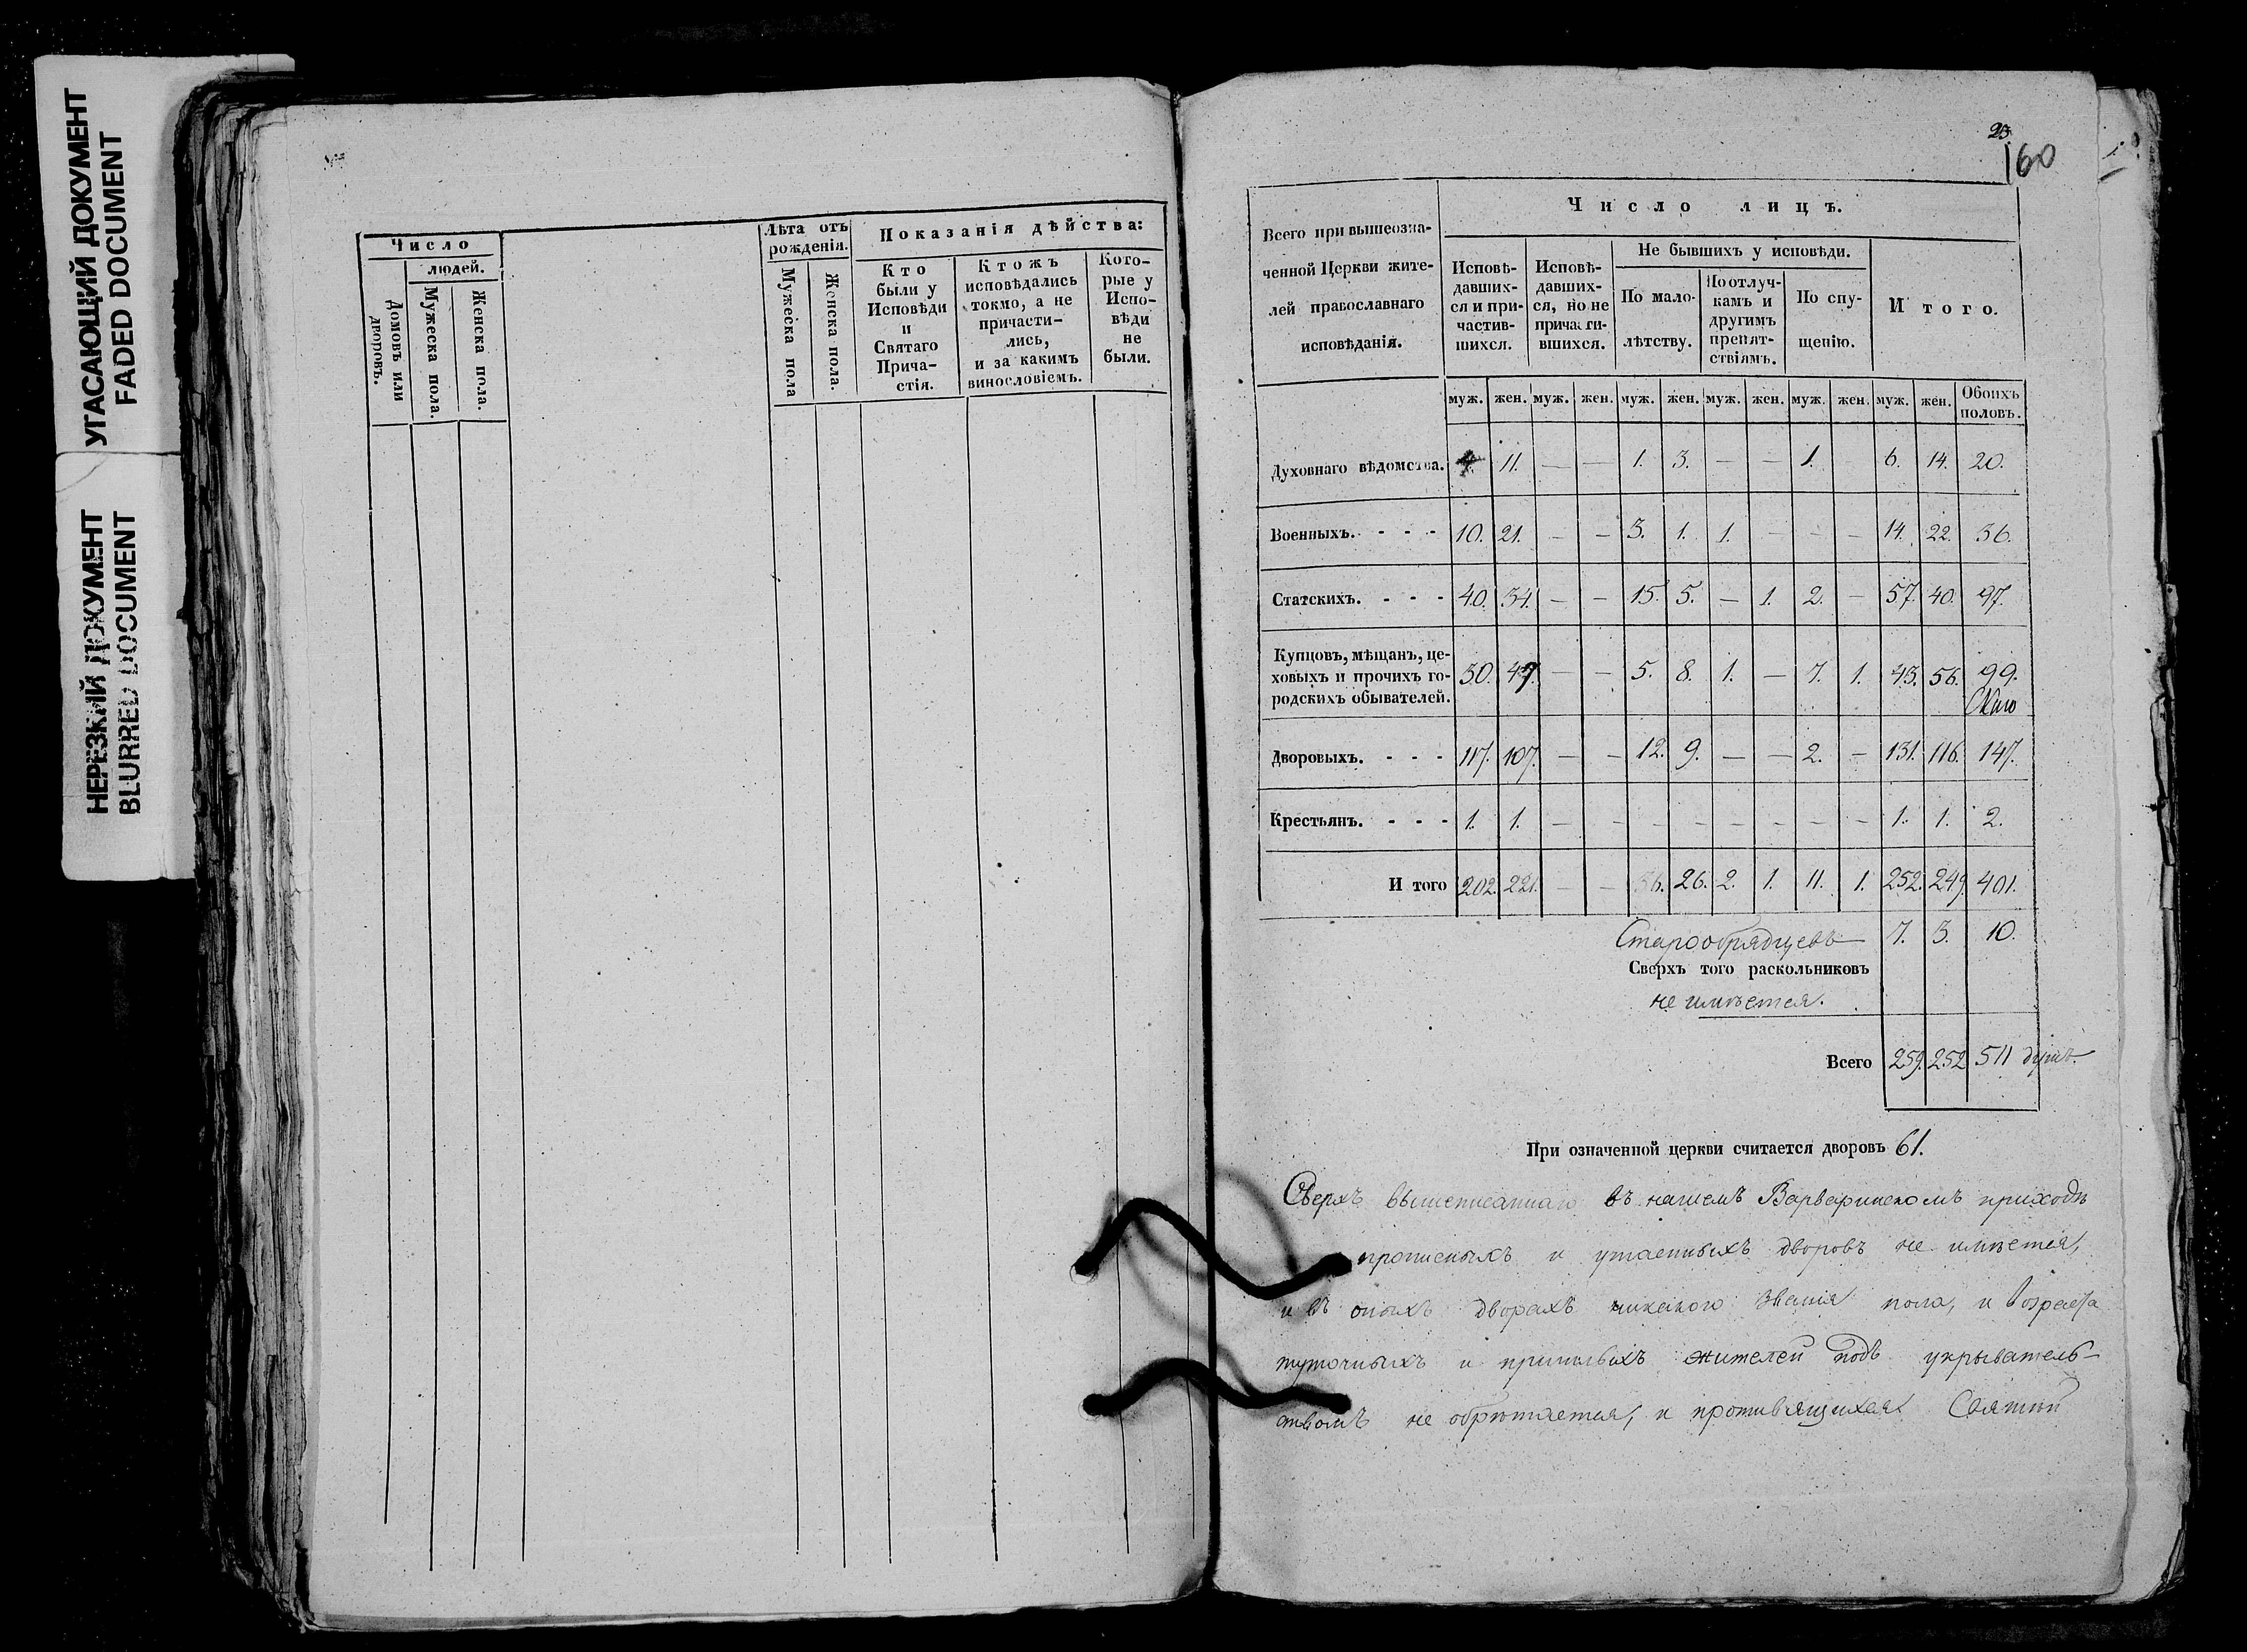 УГАСАЮЩИЙ ДОКУМЕНТ
FADED DOCUMENT
НЕРЕЗКИЙ ДОКУМЕНТ
BLURRED DOCUMENT
Число
людей.
Домовъ или дворовъ.
Мужеска пола.
Женска пола.
Лѣта отъ рожденія.
Мужеска пола
Женска пола.
Показанія дѣйства:
Кто были у Исповѣди и Святаго Прича-стія.
Ктожъ исповѣдались токмо, а не причасти-лись, и за какимъ винословіемъ.
Кото-рые у Испо-вѣди не были.
23
160
Всего при вышеозна-
ченной Церкви жите-
лей православнаго
исповѣданія.
Число лицъ.
Исповѣ-давших-ся и при-частив-шихся.
Исповѣ-давших-ся, но не причасти-вшихся.
Не бывшихъ у исповѣди.
По мало-лѣтству.
По отлуч-камъ и другимъ препят-ствіямъ.
По опу-щенію.
Итого.
муж. жен. муж. жен. муж. жен. муж. жен. муж. жен. муж. жен. Обоихъ половъ.
Духовнаго вѣдомства. 4. 11. — — 1. 3. — — 1. 6. 14. 20.
Военныхъ. - - - 10. 21. — — 3. 1. 1. — — — 14. 22. 36.
Статскихъ. - - - 40. 34. — — 15. 5. — 1. 2. — 57. 40. 97.
Купцовъ, мѣщанъ, це-
ховыхъ и прочихъ го-
родскихъ обывателей. 30. 47. — — 5. 8. 1. — 7. 1. 43. 56. 99.
Дворовыхъ. - - - 117. 107. — — 12. 9. — — 2. — 131. 116. 147.
Крестьянъ. - - - 1. 1. — — — — — — — — 1. 1. 2.
И того 202. 221. — — 36. 26. 2. 1. 11. 1. 252. 249. 401.
Старообрядцевъ 7. 3. 10.
Сверхъ того раскольниковъ
не имѣется.
Всего 259. 252 511 душъ.
При означенной церкви считается дворовъ 61.
Сверхъ вышеписаннаго въ нашемъ Варваринскомъ приходѣ
прописныхъ и утаенныхъ дворовъ не имѣется,
и въ оныхъ дворахъ никакого званія пола, и возраста
туточныхъ и пришлыхъ жителей подъ укрыватель-
ствомъ не обрѣтается, и противящихся Святѣй